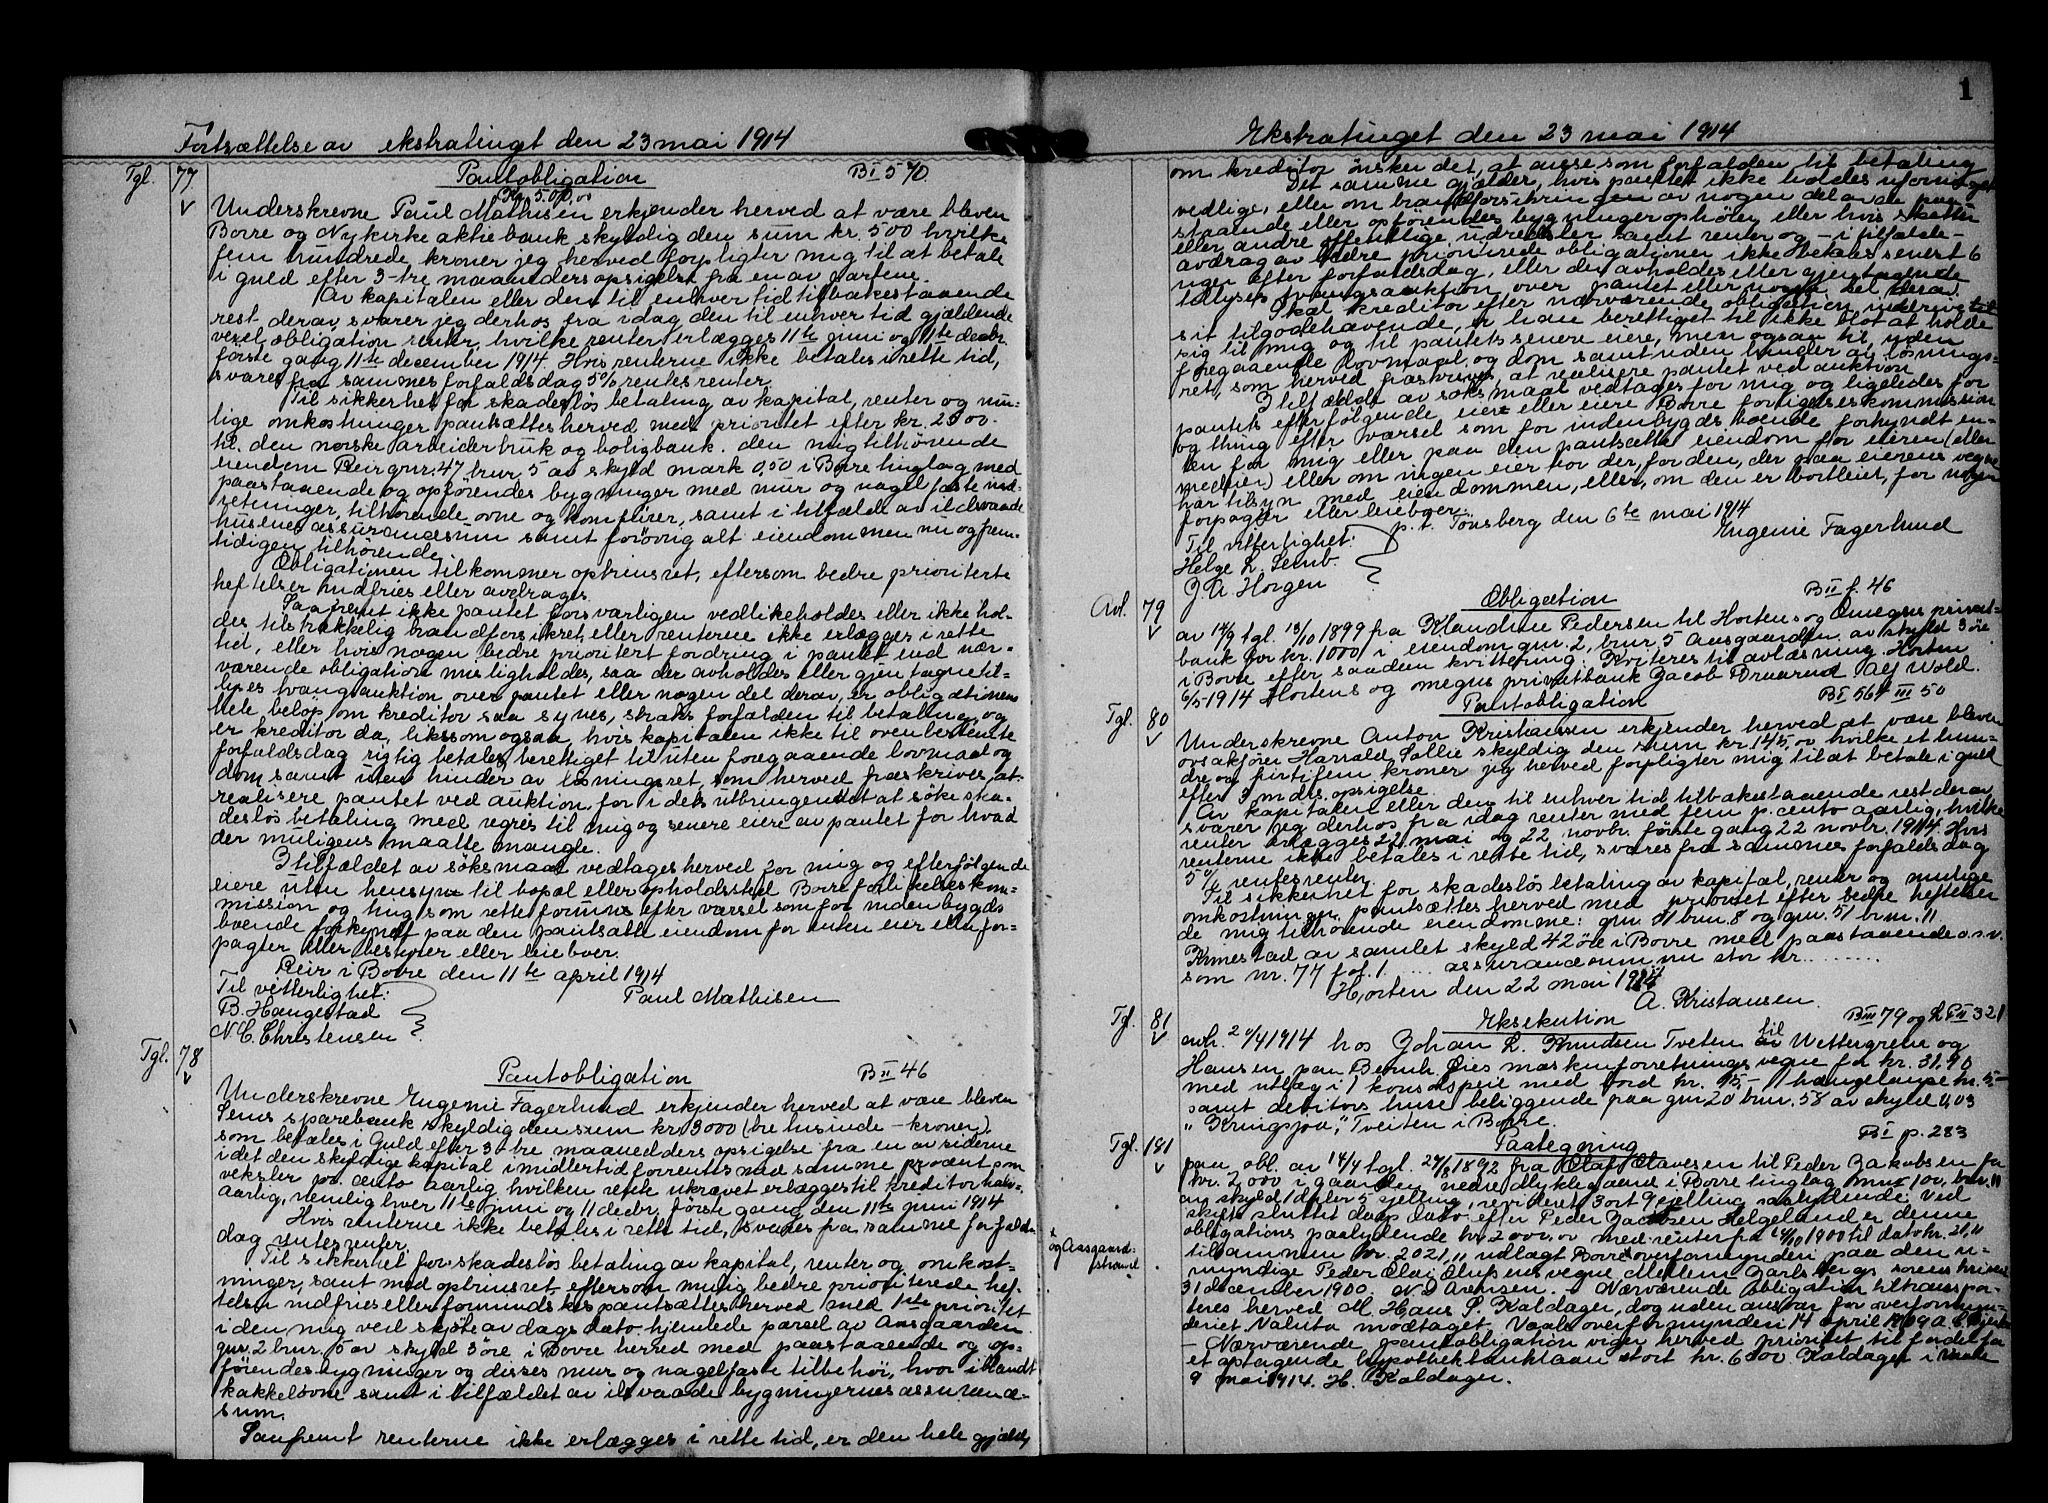 Fortsættelse av ekstratinget den 23 mai 1914
Tgl. 77 Pantobligation B I 570
Kr 500,00
Underskrevne Paul Mathisen erkjender herved at være bleven
Borre og Nykirke aktiebank skyldig den sum kr. 500 hvilke
fem hundrede kroner jeg herved forpligter mig til at betale
i guld efter 3-tre maaneders opsigelse fra en av parterne.
Av kapitalen eller den til enhver tid tilbakestaaende
rest derav svarer jeg derhos fra idag den til enhver tid gjældende
vexel obligation renter, hvilke renter erlægges 11te juni og 11te decbr.
første gang 11te december 1914. Hvis renterne ikke betales i rette tid,
svares fra sammes forfaldsdag 5% rentesrenter.
Til sikkerhet for skadesløs betaling av kapital, renter og mu-
lige omkostninger pantsættes herved med prioritet efter kr. 2500.-
til den norske arbeiderbruk og boligbank. den mig tilhørende
eiendom Reir gnr. 47 brnr. 5 av skyld mark 0,50 i Borre tinglag med
paastaaende og opførendes bygninger med mur og nagelfaste ind-
retninger, tilhørende ovne og komfürer, samt i tilfælde av ildsvaade
husenes assurancesum samt forøvrig alt eiendommen nu og frem-
tidigen tilhørende.
Obligationen tilkommer optrinsret, eftersom bedre prioriterte
heftelser indfries eller avdrages.
Saafremt ikke pantet forsvarligen vedlikeholdes eller ikke hol-
des tilstrækkelig brandforsikret, eller renterne ikke erlægges i rette
tid, eller hvis nogen bedre prioritert fordring i pantet end nær-
værende obligation misligholdes, saa der avholdes eller gjentagne til-
lyses tvangsauktion over pantet eller nogen del derav, er obligationens
hele beløp om kreditor saa synes, straks forfalden til betaling, og
er kreditor da, likesom ogsaa hvis kapitalen ikke til ovenbestemte
forfaldsdag rigtig betales, berettiget til uten foregaaende lovmaal og
dom samt uten hinder av løsningsret, som herved fraskrives, at
realisere pantet ved auktion, for i dets utbringende at søke ska-
desløs betaling med regres til mig og senere eiere av pantet for hvad
der muligens maatte mangle.
I tilfældet av søksmaal vedtages herved for mig og efterfølgende
eiere uten hensyn til bopæl eller opholdssted Borre forlikelseskom-
mission og ting som rette forum efter varsel som for indenbygds
boende forkyndt paa den pantsatte eiendom for enten eier eller for-
pagter eller bestyrer eller leieboer.
Reir i Borre den 11te april 1914
Til vitterlighet: Paul Mathisen
B. Haugestad
N. C. Christensen
Tgl. 78 Pantobligation B II 46
Underskrevne Eugenie Fagerlund erkjender herved at være bleven
Sems sparebank skyldig den sum kr. 3000 (tre tusinde - kroner).
som betales i Guld efter 3 tre maanedders opsigelse fra en av siderne
idet den skyldige kapital imidlertid forrentes med samme procent som
veksler pr. cento aarlig, hvilken rente ukrævet erlægges til kreditor halv-
aarlig, nemlig hver 11te juni og 11 decbr. første gang den 11te juni 1914
Hvis renterne ikke betales i rette tid, svares fra samme forfalds-
dag rentesrenter.
Til sikkerhet for skadesløs betaling av kapital, renter og omkost-
ninger, samt med optrinsret eftersom mulig bedre prioriterede hef-
telser indfries eller formindskes pantsættes herved med 1ste prioritet
i den mig ved skjøte av dags dato hjemlede parsel av Aasgaarden
gnr. 2 brnr. 5 av skyld 3 øre i Borre herved med paastaaende og op-
førendes bygninger og disses mur og nagelfaste tilbehør, hvor iblandt
kakkelovne samt i tilfældet av ildsvaade bygningernes assurance-
sum.
Saafremt renterne ikke erlægges i rette tid, er den hele gjæld,
1
Ekstratinget den 23 mai 1914
om kreditor ønsker det, at ansee som forfalden til betaling
Det samme gjælder, hvis pantet ikke holdes uforringet
vedlige, eller om brandforsikringen av nogen del av de paa-
staaende eller opførendes bygninger ophører eller hvis skatter
eller andre offentlige udredsler samt renter og - i tilfælde -
avdrag av bedre prioriterede obligationer ikke betales senest 6
uger efter forfaldsdag, eller der avholdes eller gjentagende
tillyses tvangsauktion over pantet eller nogen del derav.
Skal kreditor efter nærværende obligation inddrive
sit tilgodehavende, er han berettiget til ikke blot at holde
sig til mig og til pantets senere eiere, men ogsaa til, uden
foregaaende lovmaal og dom samt uden hinder av løsnings-
ret, som herved fraskrives, at realisere pantet ved auktion
I tilfældt av søksmaal vedtages for mig og ligeledes for
pantets efterfølgende eier eller eiere Borre forligelseskommission
og thing efter varsel som for indenbygds boende forkyndt en-
ten for mig eller paa den pantsatte eiendom for eieren (eller
medeier) eller om ingen eier bor der, for den, der paa eierens vegne
har tilsyn med eiendommen, eller, om den er bortleiet, for nogen
forpagter eller leieboer.
p. t. Tønsberg den 6te mai 1914
Til vitterlighet: Eugenie Fagerlund
Helge L. Semb.
J A Horgen
Avl. 79 Obligation B II f. 46
av 14/9 tgl. 13/10 1899 fra Klaudine Pedersen til Hortens og Omegns privat-
bank for kr. 1000 i eiendom gnr. 2, brnr. 5 Aasgaarden av skyld 3 øre
i Borre efter saaden kvittering: Kviteres til avlæsning Horten
6/5-1914 Hortens og omegns privatbank Jacob Bruarud Alf Wold.
Tgl. 80 Pantobligation B I 567 III 50
Underskrevne Anton Kristiansen erkjender herved at være bleven
ovrakfører Harald Sollie skyldig den sum kr. 145,00 hvilke et hun-
dre og firtifem kroner jeg herved forpligter mig til at betale i guld
efter 3 mdrs. opsigelse.
Av kapitalen eller den til enhver tid tilbakestaaende rest derav
svarer jeg derhos fra idag renter med fem p. cento aarlig, hvilke
renter erlægges 22 mai og 22 novbr. første gang 22 novbr. 1914. Hvis
renterne ikke betales i rette tid, svares fra sammes forfaldsdag
5 % rentesrenter.
Til sikkerhet for skadesløs betaling av kapital, renter og mulige
omkostninger pantsættes herved med prioritet efter bedre heftelser
de mig tilhørende eiendomme: gnr. 51 brnr. 8 og gnr. 51 brnr. 11
Knnestad av samlet skyld 42 øre i Borre med paastaaende o.s.v.
som nr. 77 fol. 1. .... assurancesum nu stor kr. ........
Horten den 22 mai 1914
A. Kristiansen.
Tgl. 81 Eksekution B III 79 og L P II 321
avh. 20/4 1914 hos Johan L. Knudsen Tveten til Wettergren og
Hansen paa Bernh. Øies maskinforretnings vegne for kr. 31.90
med utlæg i 1 konsolspeil med bord kr. 15,- 1 hængelampe kr. 5,-
samt debitors huse beliggende paa gnr 20 brnr. 58 av skyld 0,03
"Kringsjaa", Tveiten i Borre.
Tgl. 181 Paategning B I p. 283
paa obl. av 14/4 tgl. 27/8 1892 fra Olaf Olavesen til Peder Jakobsen for
kr. 2,000 i gaarden nedre Olyklegaard i Borre tinglag mnr 100, brn. 11
av skyld 1 daler 5 sjelling, revideret 3 ort 9 sjelling saalydende: Ved
skifte sluttet dags dato efter Peder Jacobsen Helgeland er denne
obligations paalydende kr. 2000,00 med renter fra 14/10 1900 til dato kr. 21,11
tilsammen kr. 2021,11 udlagt Borre overformynderi paa den u-
+ og Aasgaard-
strand
myndige Peder Olaj Olufsens vegne Mellem Jarlsbergs sorenskriveri
31 december 1900. N. S Avensen. - Nærværende obligation transpor-
teres herved til Hans S. Kaldager, dog uden ansvar for overformyn-
deriet Valuta modtaget. Vaale overformynderi 14 april 1909
- Nærværende pantobligation viger herved prioritet til fordel for
et optagende hypothekbanklaan stort kr. 6000 Kaldager i Vaale
9 mai 1914. H. Kaldager.